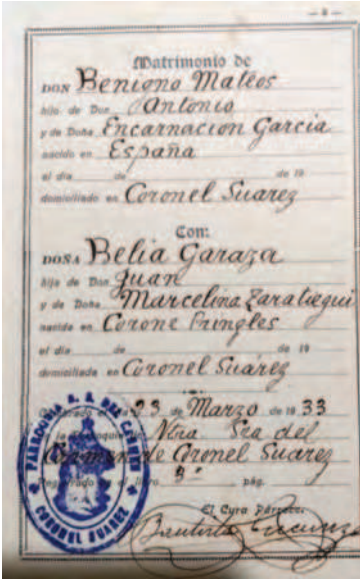 — 3 —
Matrimonio de
DON Benigno Mateos
hijo de Don Antonio
y de Doña Encarnacion Garcia
nacido en España
el día de de 19
domiciliado en Coronel Suarez
Con:
DOÑA Belia Garaza
hija de Don Juan
y de Doña Marcelina Zaratiegui
nacida en Corone Pringles
el día de de 19
domiciliada en Coronel Suárez
el 23 de Marzo de 19 33
Ntra Sra del
Carmen de Coronel Suarez
Registrado en el libro 3º pág.
El Cura Párroco:
Bautista
PARROQUIA N. S. DEL CARMEN
CORONEL SUAREZ